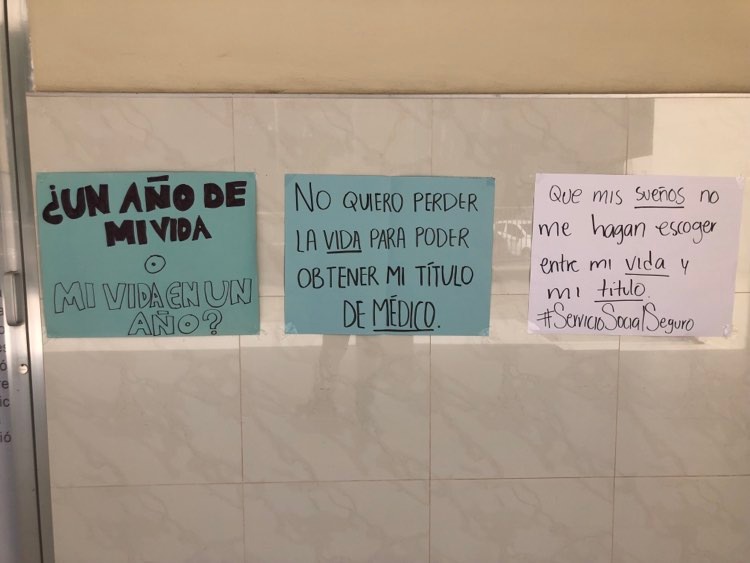 ¿UN AÑO DE
MI VIDA
O
MI VIDA EN UN
AÑO?
NO QUIERO PERDER
LA VIDA PARA PODER
OBTENER MI TÍTULO
DE MÉDICO.
Que mis sueños no
me hagan escoger
entre mi vida y
mi titulo.
#ServicioSocialSeguro